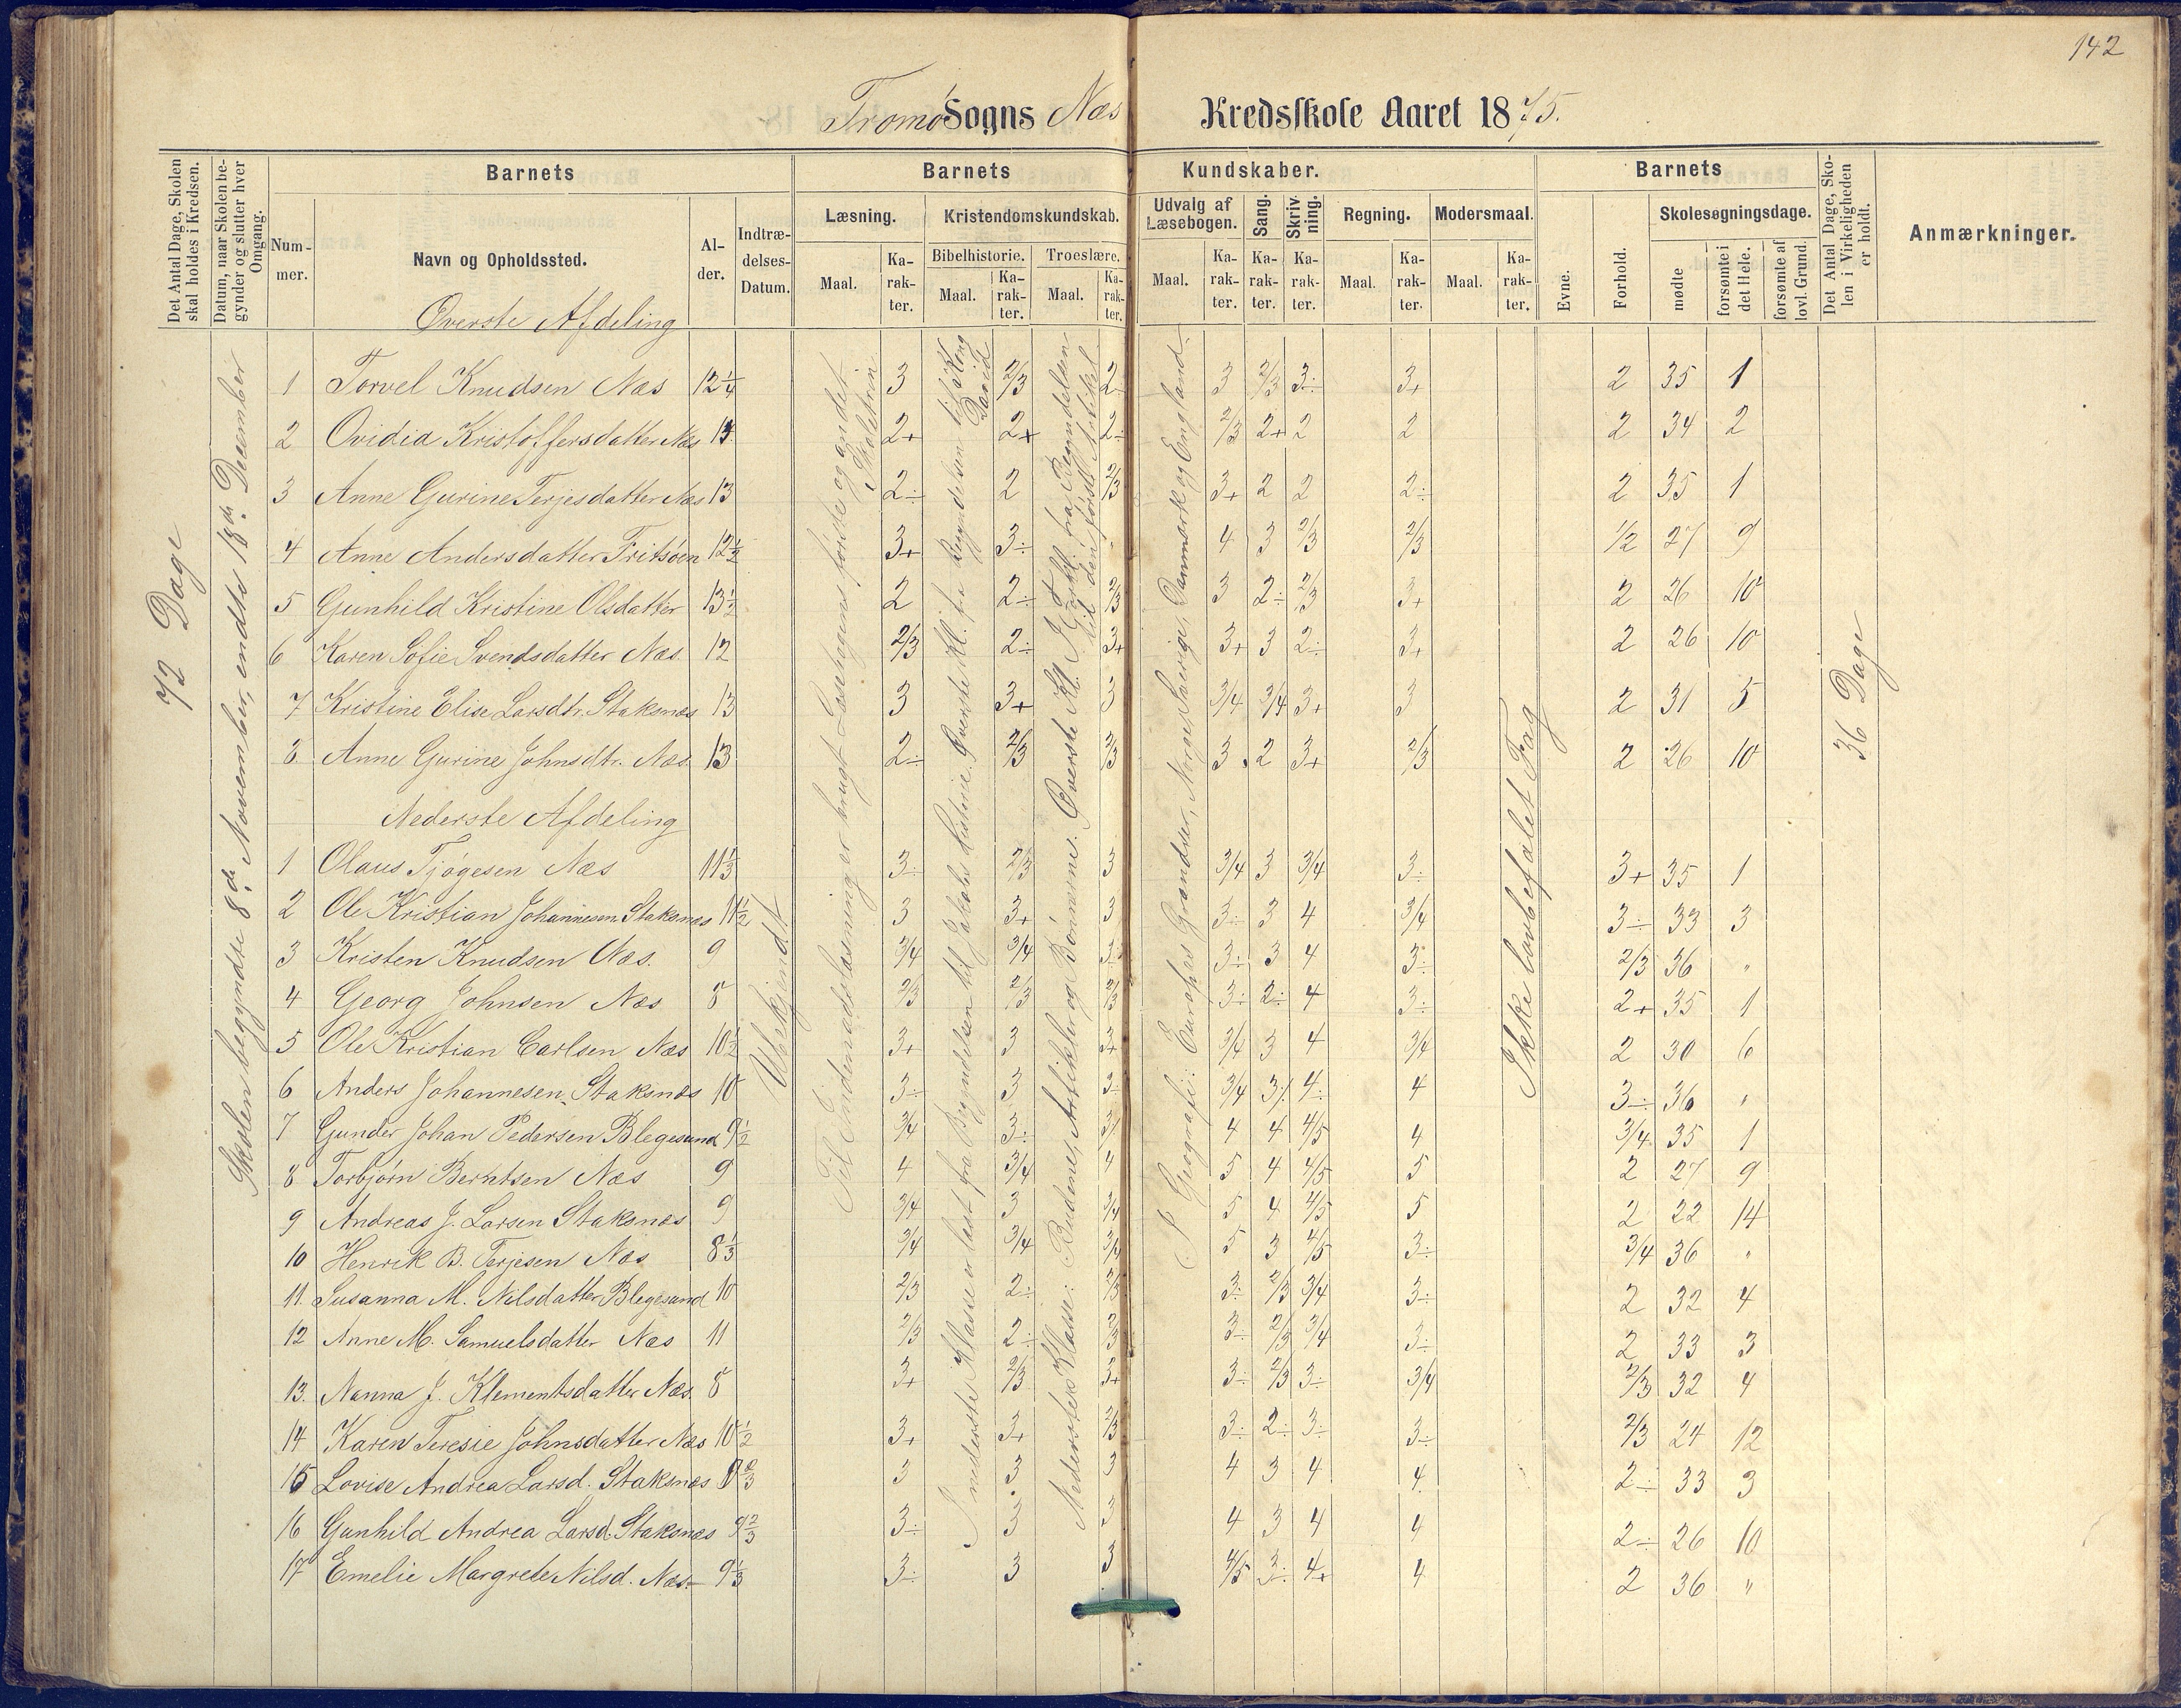 142
Tromø Sogns Næs Kredsskole Aaret 1875.
Det Antal Dage, Skolen skal holdes i Kredsen.
Datum, naar Skolen begynder og slutter hver Omgang.
Barnets
Nummer.
Navn og Opholdssted.
Alder.
Indtrædelses-Datum.
Barnets Kundskaber.
Læsning.
Maal.
Karakter.
Kristendomskundskab.
Bibelhistorie.
Maal.
Karakter.
Troeslære.
Maal.
Karakter.
Udvalg af Læsebogen.
Maal.
Karakter.
Sang.
Karakter.
Skrivning.
Karakter.
Regning.
Maal.
Karakter.
Modersmaal.
Maal.
Karakter.
Barnets
Evne.
Forhold.
Skolesøgningsdage.
mødte
forsømte i det Hele.
forsømte af lovl. Grund.
Det Antal Dage, Skolen i Virkeligheden er holdt.
Anmærkninger.
72 Dage
Skolen begyndte 8de November, endte 18de December
Ubekjendt
Til Indenadslæsning er brugt Læsebogens første og andet Skoletrin
I nederste Klasse er læst fra Begyndelsen til Jakobs Historie. Øverste Kl. fra Begyndelsen til Kong David
Nederste Klasse: Budene, Artikler og Bønnerne. Øverste Kl. I Forkl. fra Begyndelsen til den første Artikel
I Geografi: Europas Grændser, Norge, Sverige, Danmark og England.
Ikke lovbefalet Fag
36 Dage
Øverste Afdeling
1 Torvel Knudsen Næs 12 1/4 3 2/3 2÷ 3 2/3 3÷ 3+ 2 35 1
2 Ovidia Kristoffersdatter Næs 13 2+ 2+ 2÷ 2/3 2+ 2 2 2 34 2
3 Anne Gurine Terjesdatter Næs 13 2÷ 2 2/3 3+ 2 2 2÷ 2 35 1
4 Anne Andersdatter Fritsøen 12 1/2 3+ 3÷ 4 3 2/3 2/3 1/2 27 9
5 Gunhild Kristine Olsdatter 13 1/2 2 2÷ 2/3 3 2÷ 2/3 3+ 2 26 10
6 Karen Sofie Svendsdatter Næs 12 2/3 2÷ 3+ 3+ 3 2÷ 3+ 2 26 10
7 Kristine Elise Larsdtr. Staksnæs 13 3 3+ 3 3/4 3/4 3+ 3 2 31 5
8 Anne Gurine Johnsdtr. Næs 13 2÷ 2/3 2/3 3 2 3+ 2/3 2 26 10
Nederste Afdeling
1 Olaus Tjøgesen Næs 11 1/3 3÷ 2/3 3 3/4 3 3/4 3÷ 3+ 35 1
2 Ole Kristian Johannesen Staksnæs 11 1/2 3 3+ 3 3÷ 3 4 3/4 3÷ 33 3
3 Kristen Knudsen Næs. 9 3/4 3/4 3÷ 3÷ 3 4 3÷ 2/3 36 "
4 Georg Johnsen Næs 8 2/3 2/3 2/3 3÷ 2÷ 4 3÷ 2+ 35 1
5 Ole Kristian Carlsen Næs 10 1/2 3+ 3 3+ 3/4 3 4 3/4 2 30 6
6 Anders Johannesen Staksnæs 10 3÷ 3 3÷ 3/4 3÷ 4÷ 4 3÷ 36 "
7 Gunder Johan Pedersen Blegesund 9 1/2 3/4 3÷ 3÷ 4 4 4/5 4 3/4 35 1
8 Torbjørn Berntsen Næs 9 4 3/4 4 5 4 4/5 5 2 27 9
9 Andreas J. Larsen Staksnæs 9 3/4 3 3/4 5 4 4/5 5 2 22 14
10 Henrik B. Terjesen Næs 8 1/3 3/4 3/4 3/4 5 3 4/5 3÷ 3/4 36 "
11. Susanna M. Nilsdatter Blegesund 10 2/3 2÷ 2/3 3÷ 2/3 3/4 3÷ 2 32 4
12 Anne M. Samuelsdatter Næs 11 2/3 2÷ 2/3 3÷ 2/3 3/4 3÷ 2 33 3
13. Nanna J. Klementsdatter Næs. 8 3+ 2/3 3+ 3÷ 2/3 3÷ 3/4 2/3 32 4
14 Karen Teresie Johnsdatter Næs 10 1/2 3+ 3+ 2/3 3÷ 2÷ 3÷ 3÷ 2/3 24 12
15 Lovise Andrea Larsd. Staksnæs 8 2/3 3 3 3 4 3 4 4 2÷ 33 3
16 Gunhild Andrea Larsd. Staksnæs 9 2/3 3÷ 3 3 4 3 4 4 2÷ 26 10
17 Emelie Margrete Nilsd. Næs 9 1/3 3÷ 3 3 4/5 3÷ 4+ 4 2 36 "